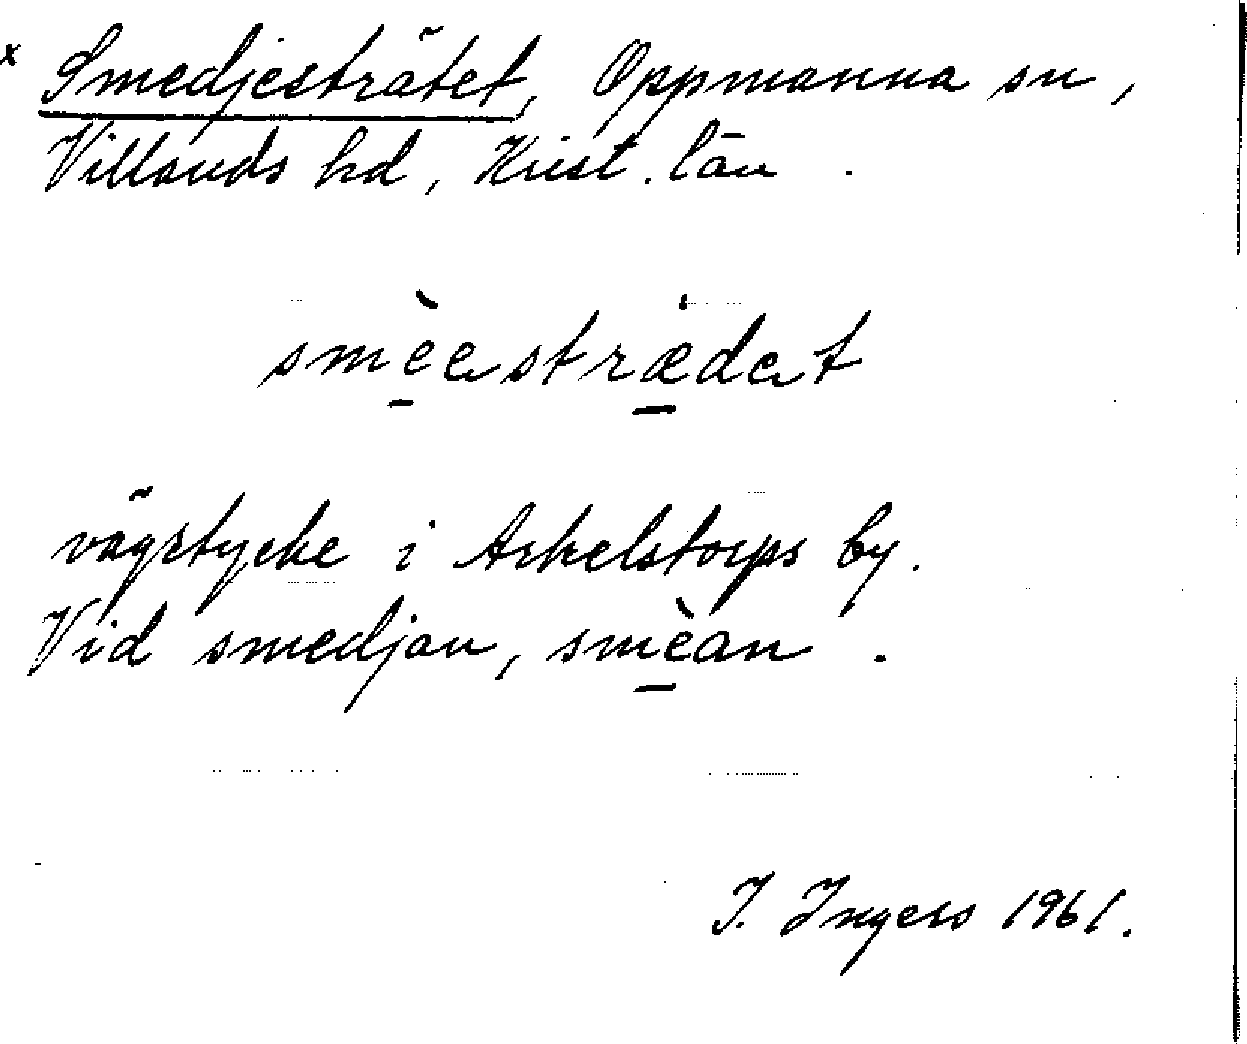 x Smedjesträtet, Oppmanna sn,
Villands hd, Krist. län.
smèestrædet
vägstycke i Arkelstorps by.
Vid smedjan, smèan.
I. Ingers 1961.